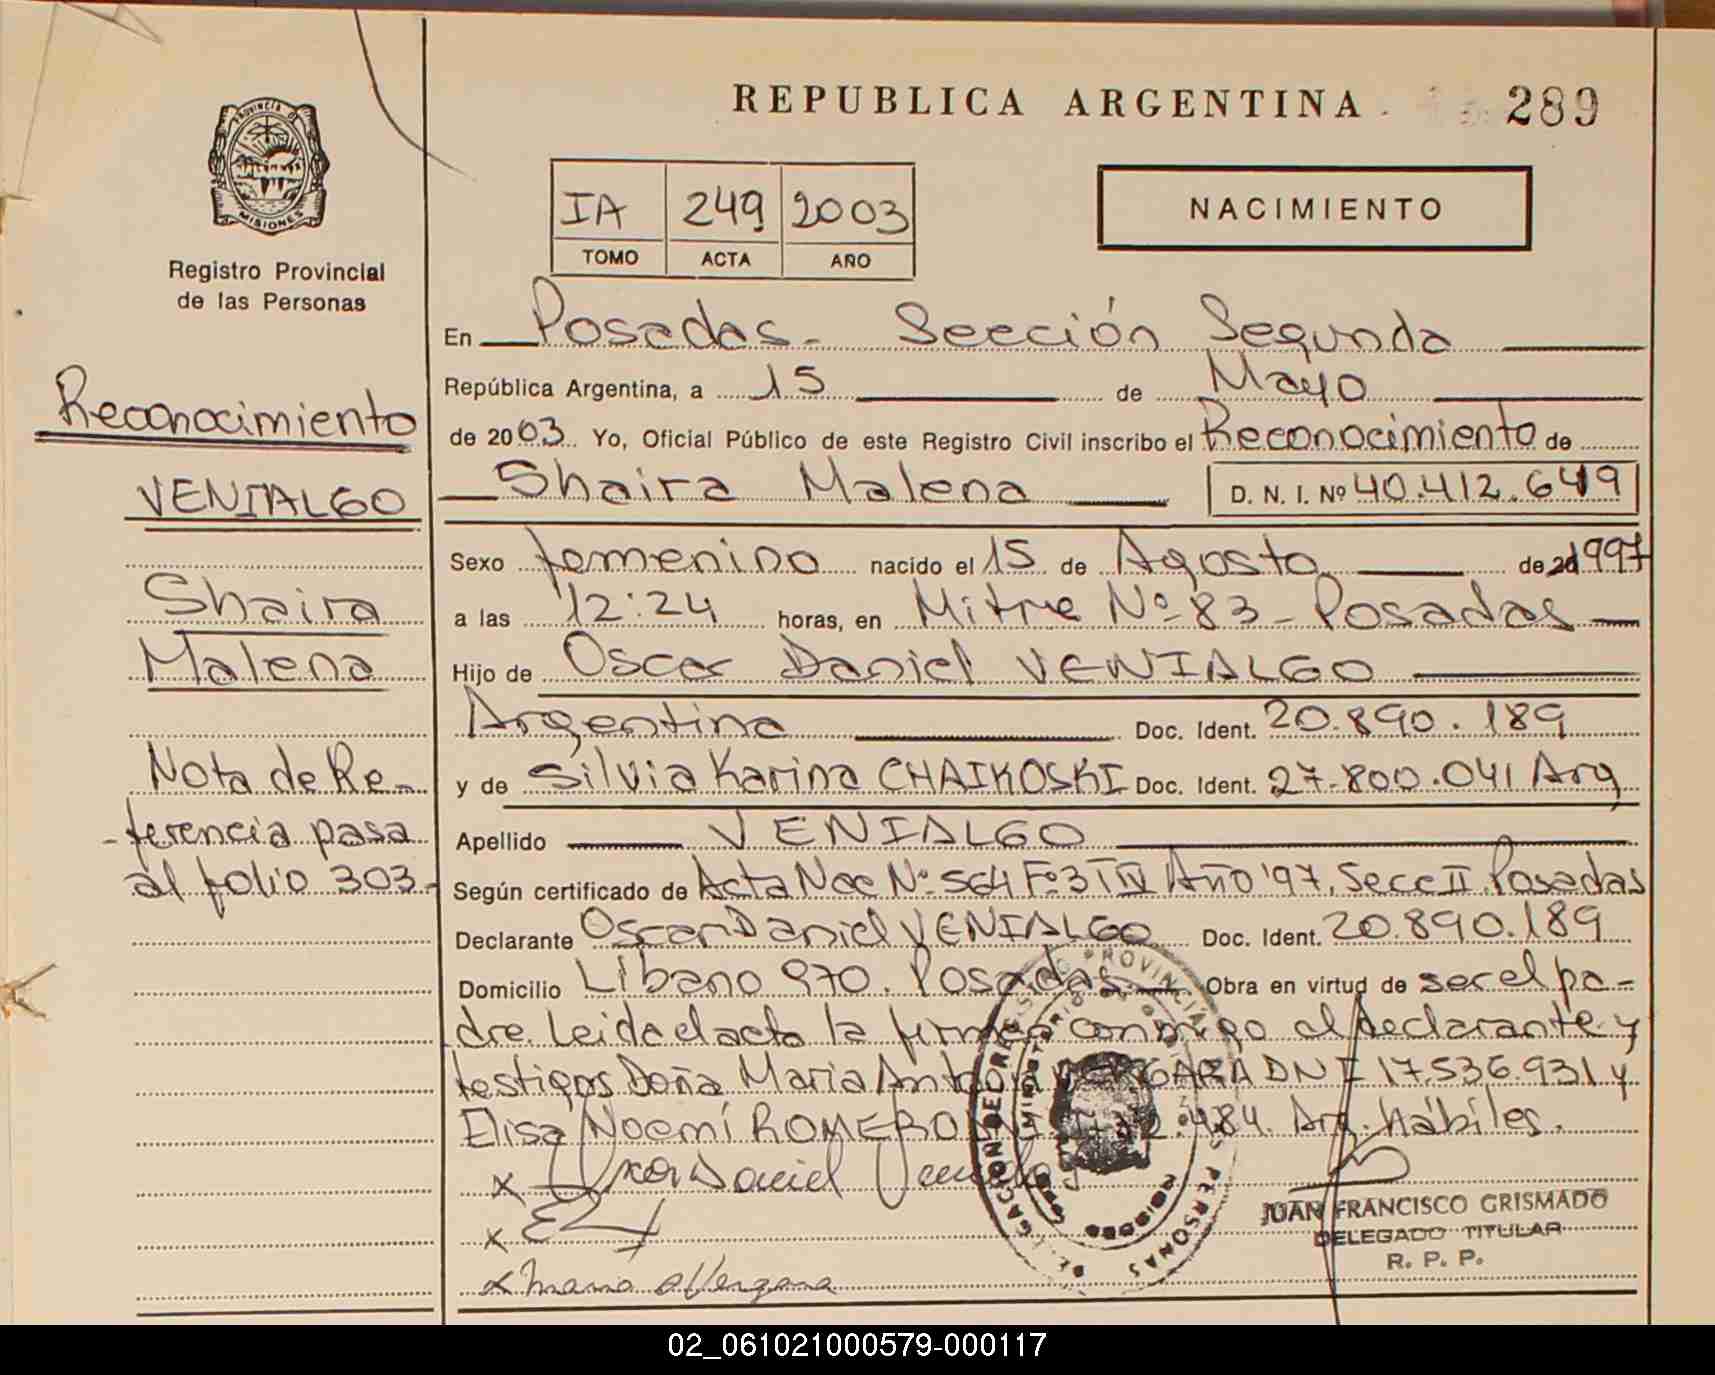 REPUBLICA ARGENTINA 289
PROVINCIA DE
MISIONES
Registro Provincial
de las Personas
IA 249 2003
TOMO ACTA AÑO
NACIMIENTO
Reconocimiento
VENIALGO
Shaira
Malena
Nota de Re-
-ferencia pasa
al folio 303.-
En Posadas- Sección Segunda
República Argentina, a 15 de Mayo
de 2003 Yo, Oficial Público de este Registro Civil inscribo el Reconocimiento de
Shaira Malena D. N. I. Nº 40.412.649
Sexo femenino nacido el 15 de Agosto de 1997
a las 12:24 horas, en Mitre Nº 83 - Posadas
Hijo de Oscar Daniel VENIALGO
Argentina Doc. Ident. 20.890.189
y de Silvia Karina CHAIKOSKI Doc. Ident. 27.800.041 Arg
Apellido VENIALGO
Según certificado de Acta Nac Nº 564 Fº 3 T IV Año '97. Secc II Posadas
Declarante Oscar Daniel VENIALGO Doc. Ident. 20.890.189
Domicilio Líbano 970. Posadas. Obra en virtud de ser el pa-
dre. Leida el acta la firman conmigo el declarante y
testigos Doña María Antonia VERGARA DNI 17.536.931 y
Elisa Noemí ROMERO .484. Arg. hábiles.
x Oscar Daniel Venialgo
x
x Maria A Vergara
JUAN FRANCISCO GRISMADO
DELEGADO TITULAR
R. P. P.
02_061021000579-000117